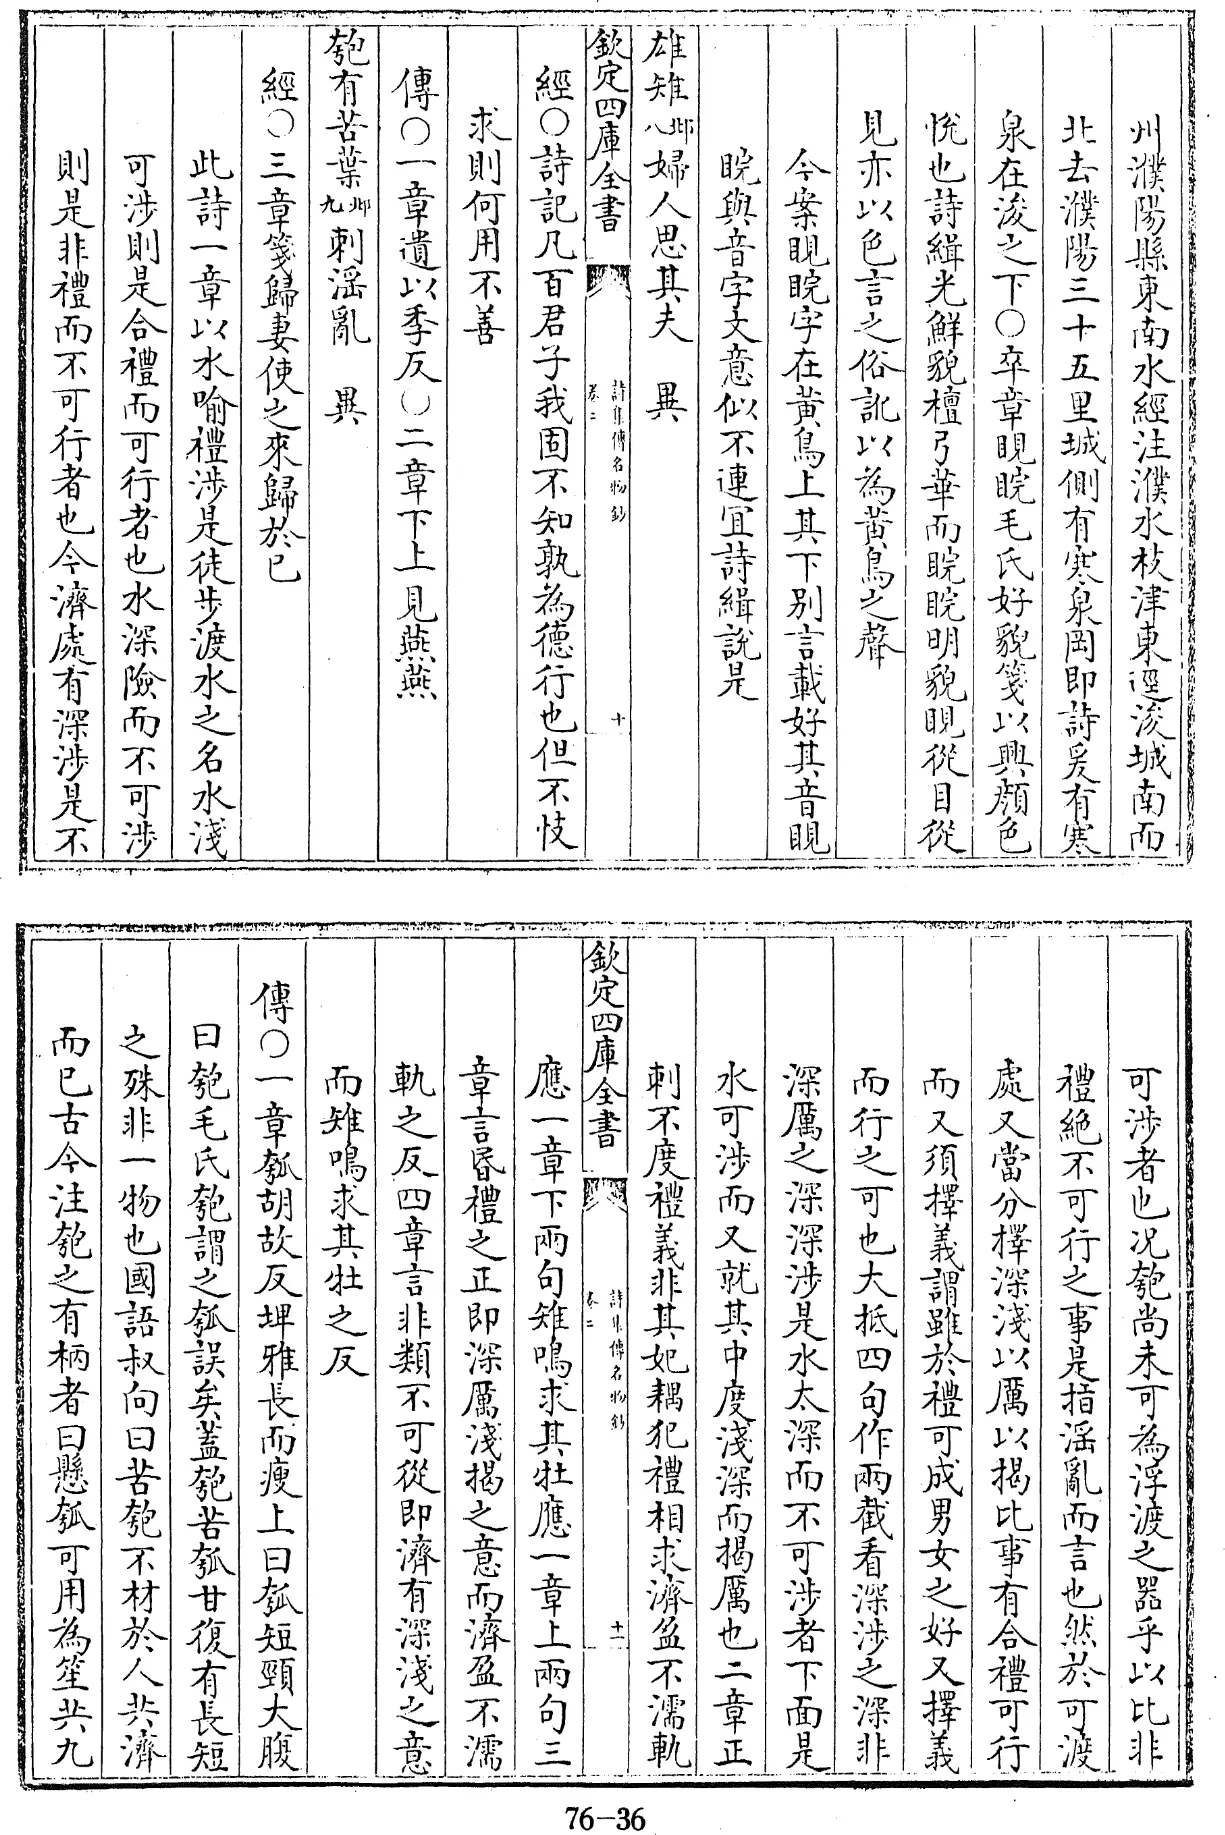 州濮陽縣東南水經注濮水枝津東逕浚城南而
北去濮陽三十五里城側有寒泉岡即詩爰有寒
泉在浚之下〇卒章睍睆毛氏好貌箋以興顔色
悅也詩緝光鮮貌檀弓華而睆睆明貌睍從目從
見亦以色言之俗訛以為黃鳥之聲
今案睍睆字在黃鳥上其下别言載好其音睍
睆與音字文意似不連宜詩緝說是
雄雉八邶婦人思其夫 異
欽定四庫全書 詩集傳名物鈔 卷二 十
經〇詩記凡百君子我固不知孰為德行也但不忮
求則何用不善
傳〇一章遺以季反〇二章下上見燕燕
匏有苦葉九邶刺滛亂 異
經〇三章箋歸妻使之來歸於已
此詩一章以水喻禮涉是徒步渡水之名水淺
可涉則是合禮而可行者也水深險而不可涉
則是非禮而不可行者也今濟處有深涉是不
可涉者也况匏尚未可為浮渡之器乎以比非
禮絶不可行之事是指滛亂而言也然於可渡
處又當分擇深淺以厲以揭比事有合禮可行
而又須擇義謂雖於禮可成男女之好又擇義
而行之可也大抵四句作兩截看深涉之深非
深厲之深深涉是水太深而不可涉者下面是
水可涉而又就其中度淺深而揭厲也二章正
刺不度禮義非其妃耦犯禮相求濟盈不濡軌
欽定四庫全書 詩集傳名物鈔 卷二 十一
應一章下兩句雉鳴求其牡應一章上兩句三
章言昏禮之正即深厲淺揭之意而濟盈不濡
軌之反四章言非類不可從即濟有深淺之意
而雉鳴求其牡之反
傳〇一章瓠胡故反埤雅長而瘦上曰瓠短頸大腹
曰匏毛氏匏謂之瓠誤矣蓋匏苦瓠甘復有長短
之殊非一物也國語叔向曰苦匏不材於人共濟
而已古今注匏之有柄者曰懸瓠可用為笙共九
76-36